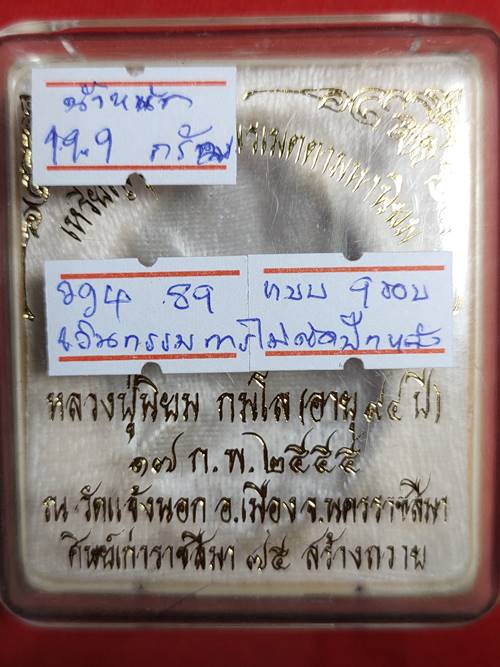 น้ำหนัก
19.9 กรัม
เหรียญ เมตตามหานิยม
89 ทบบ 9 รอบ
เงินกรรมการไม่ตัดปีกหลัง
หลวงปู่นิยม กมโล (อายุ ๘๔ ปี)
๑๗ ก.พ. ๒๕๕๕
ณ วัดแจ้งนอก อ.เมือง จ.นครราชสีมา
ศิษย์เก่าราชสีมา ๗๕ สร้างถวาย